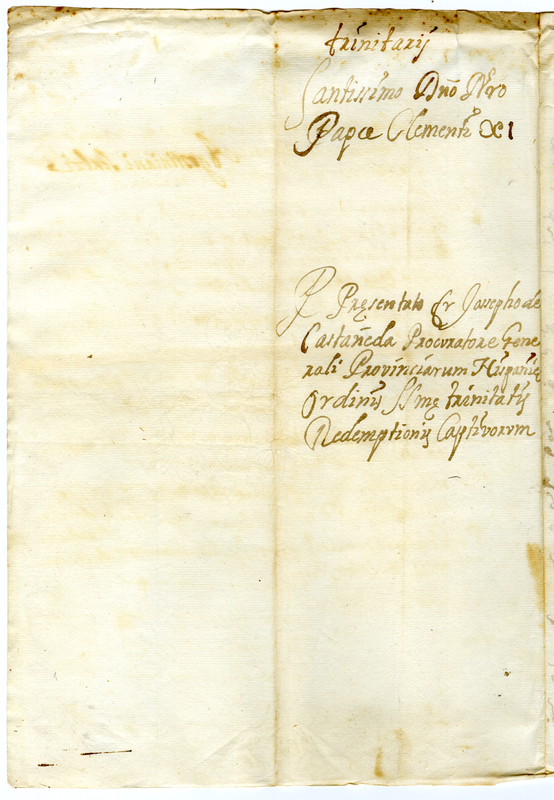 trinitarij
Santissimo Dño Nr̃o
Papæ Clementi XI
P Pręsentato fr Josepho de
Castañeda Procuratore Gene
rali Provinciarum Hispanię
Ordinis SSmę trinitatis
Redemptionis Captivorum